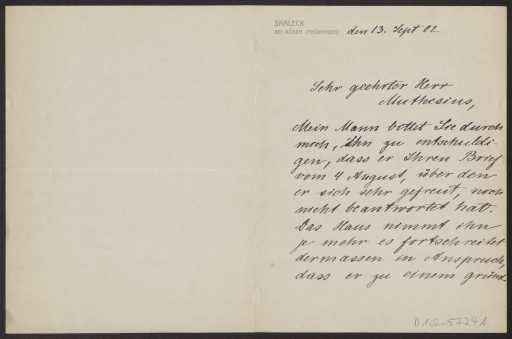 SAALECK
BEI KÖSEN (THÜRINGEN)
den 13. Sept 02.
Sehr geehrter Herr
Muthesius,
Mein Mann bittet Sie durch
mich, ihn zu entschuldi-
gen, dass er Ihren Brief
vom 4 August, über den
er sich sehr gefreut, noch
nicht beantwortet hat.
Das Haus nimmt ihn
je mehr es fortschreitet
dermassen in Anspruch,
dass er zu einem gründ-